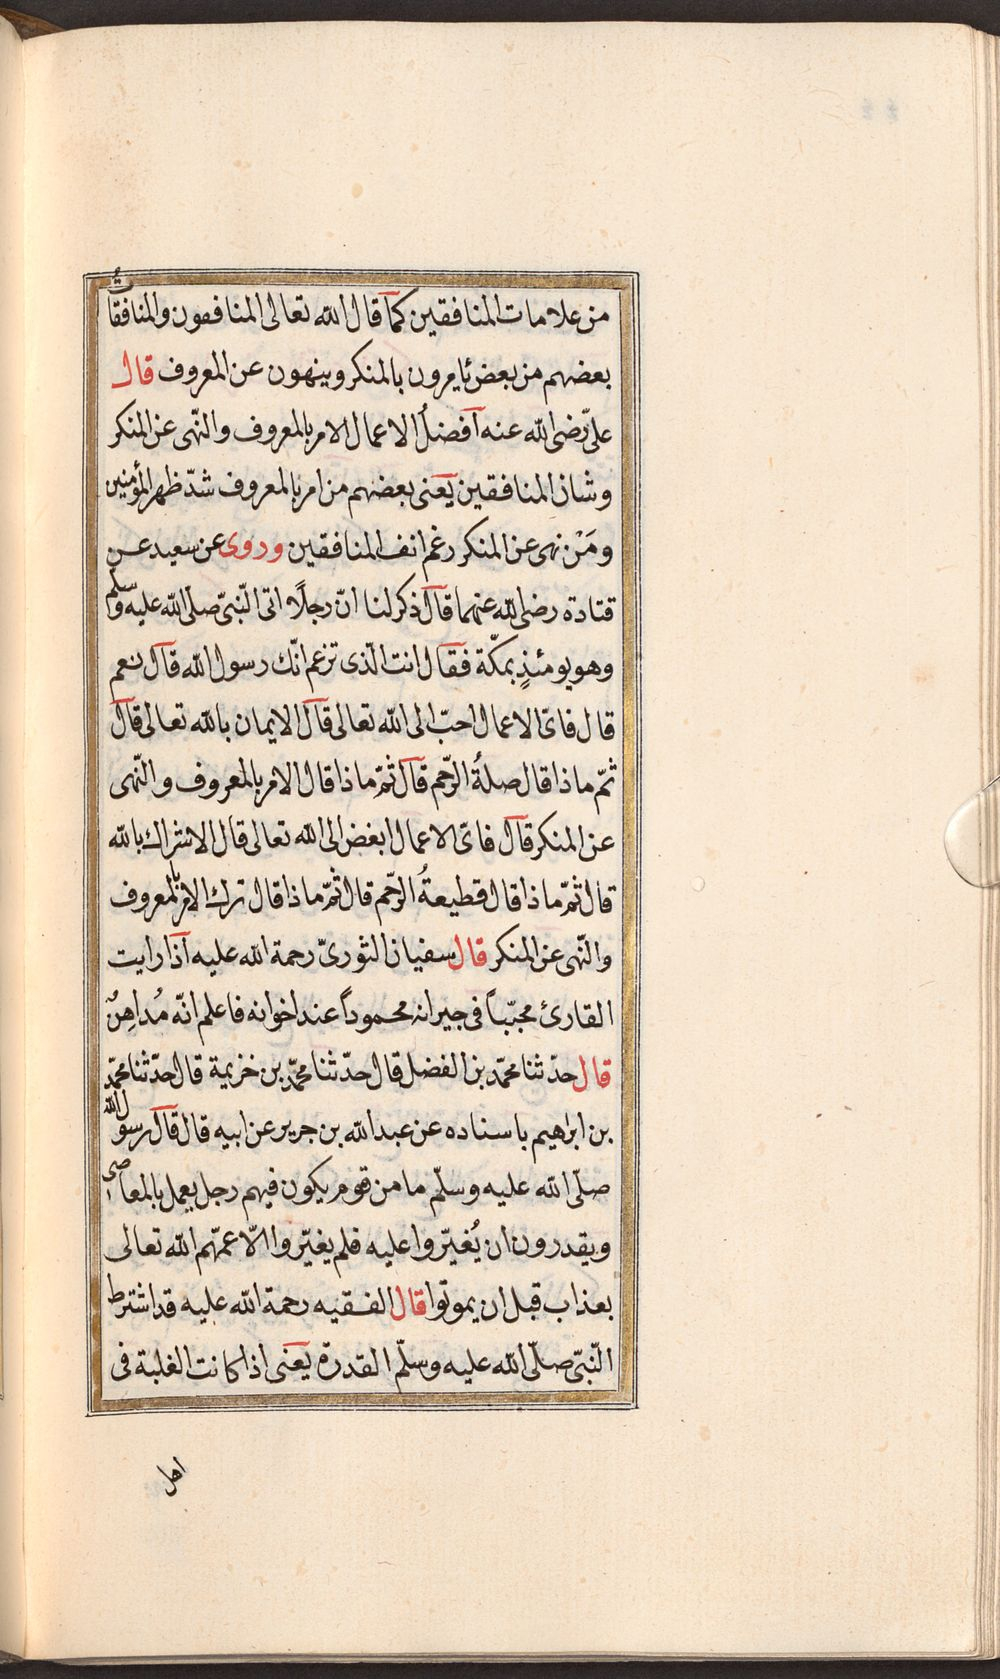 من علامات المنافقين كما قال الله تعالى المنافقون والمنافقات
بعضهم من بعض يأمرون بالمنكر وينهون عن المعروف قال
علىّ رضى الله عنه افضلُ الاعمال الامر بالمعروف والنّهى عن المنكر
وشنان المنافقين يعنى بعضهم من امر بالمعروف شدّ ظهر المؤمنين
ومَنْ نهى عن المنكر رغم انف المنافقين وروى عن سعيد عن
قتادة رضى الله عنهما قال ذكر لنا انّ رجلًا اتى النّبىّ صلّى الله عليه وسلّم
وهو يومئذٍ بمكّة فقال انت الّذى تزعم انّك رسول الله قال نعم
قال فاىّ الاعمال احبّ الى الله تعالى قال الايمان بالله تعالى قال
ثمّ ماذا قال صلةُ الرّحم قال ثمّ ماذا قال الامر بالمعروف والنّهى
عن المنكر قال فاىّ الاعمال ابغض الى الله تعالى قال الاشراك بالله
قال ثمّ ماذا قال قطيعةُ الرّحم قال ثمّ ماذا قال ترك الامر بالمعروف
والنّهى عن المنكر قال سفيان الثورىّ رحمة الله عليه اذا رايت
القارئ محبّباً فى جيرانه محموداً عند اخوانه فاعلم انّه مُداهِنٌ
قال حدّثنا محمّد بن الفضل قال حدّثنا محمّد بن خزيمة قال حدّثنا محمّد
بن ابراهيم باسناده عن عبد الله بن جرير عن ابيه قال قال رسول الله
صلّى الله عليه وسلّم ما من قوم يكون فيهم رجل يعمل بالمعاصى
ويقدرون ان يُغيّروا عليه فلم يغيّروا الّا عمّهم الله تعالى
بعذاب قبل ان يموتوا قال الفقيه رحمة الله عليه قد اشترط
النّبىّ صلّى الله عليه وسلّم القدرة يعنى اذا كانت الغلبة فى
اهل